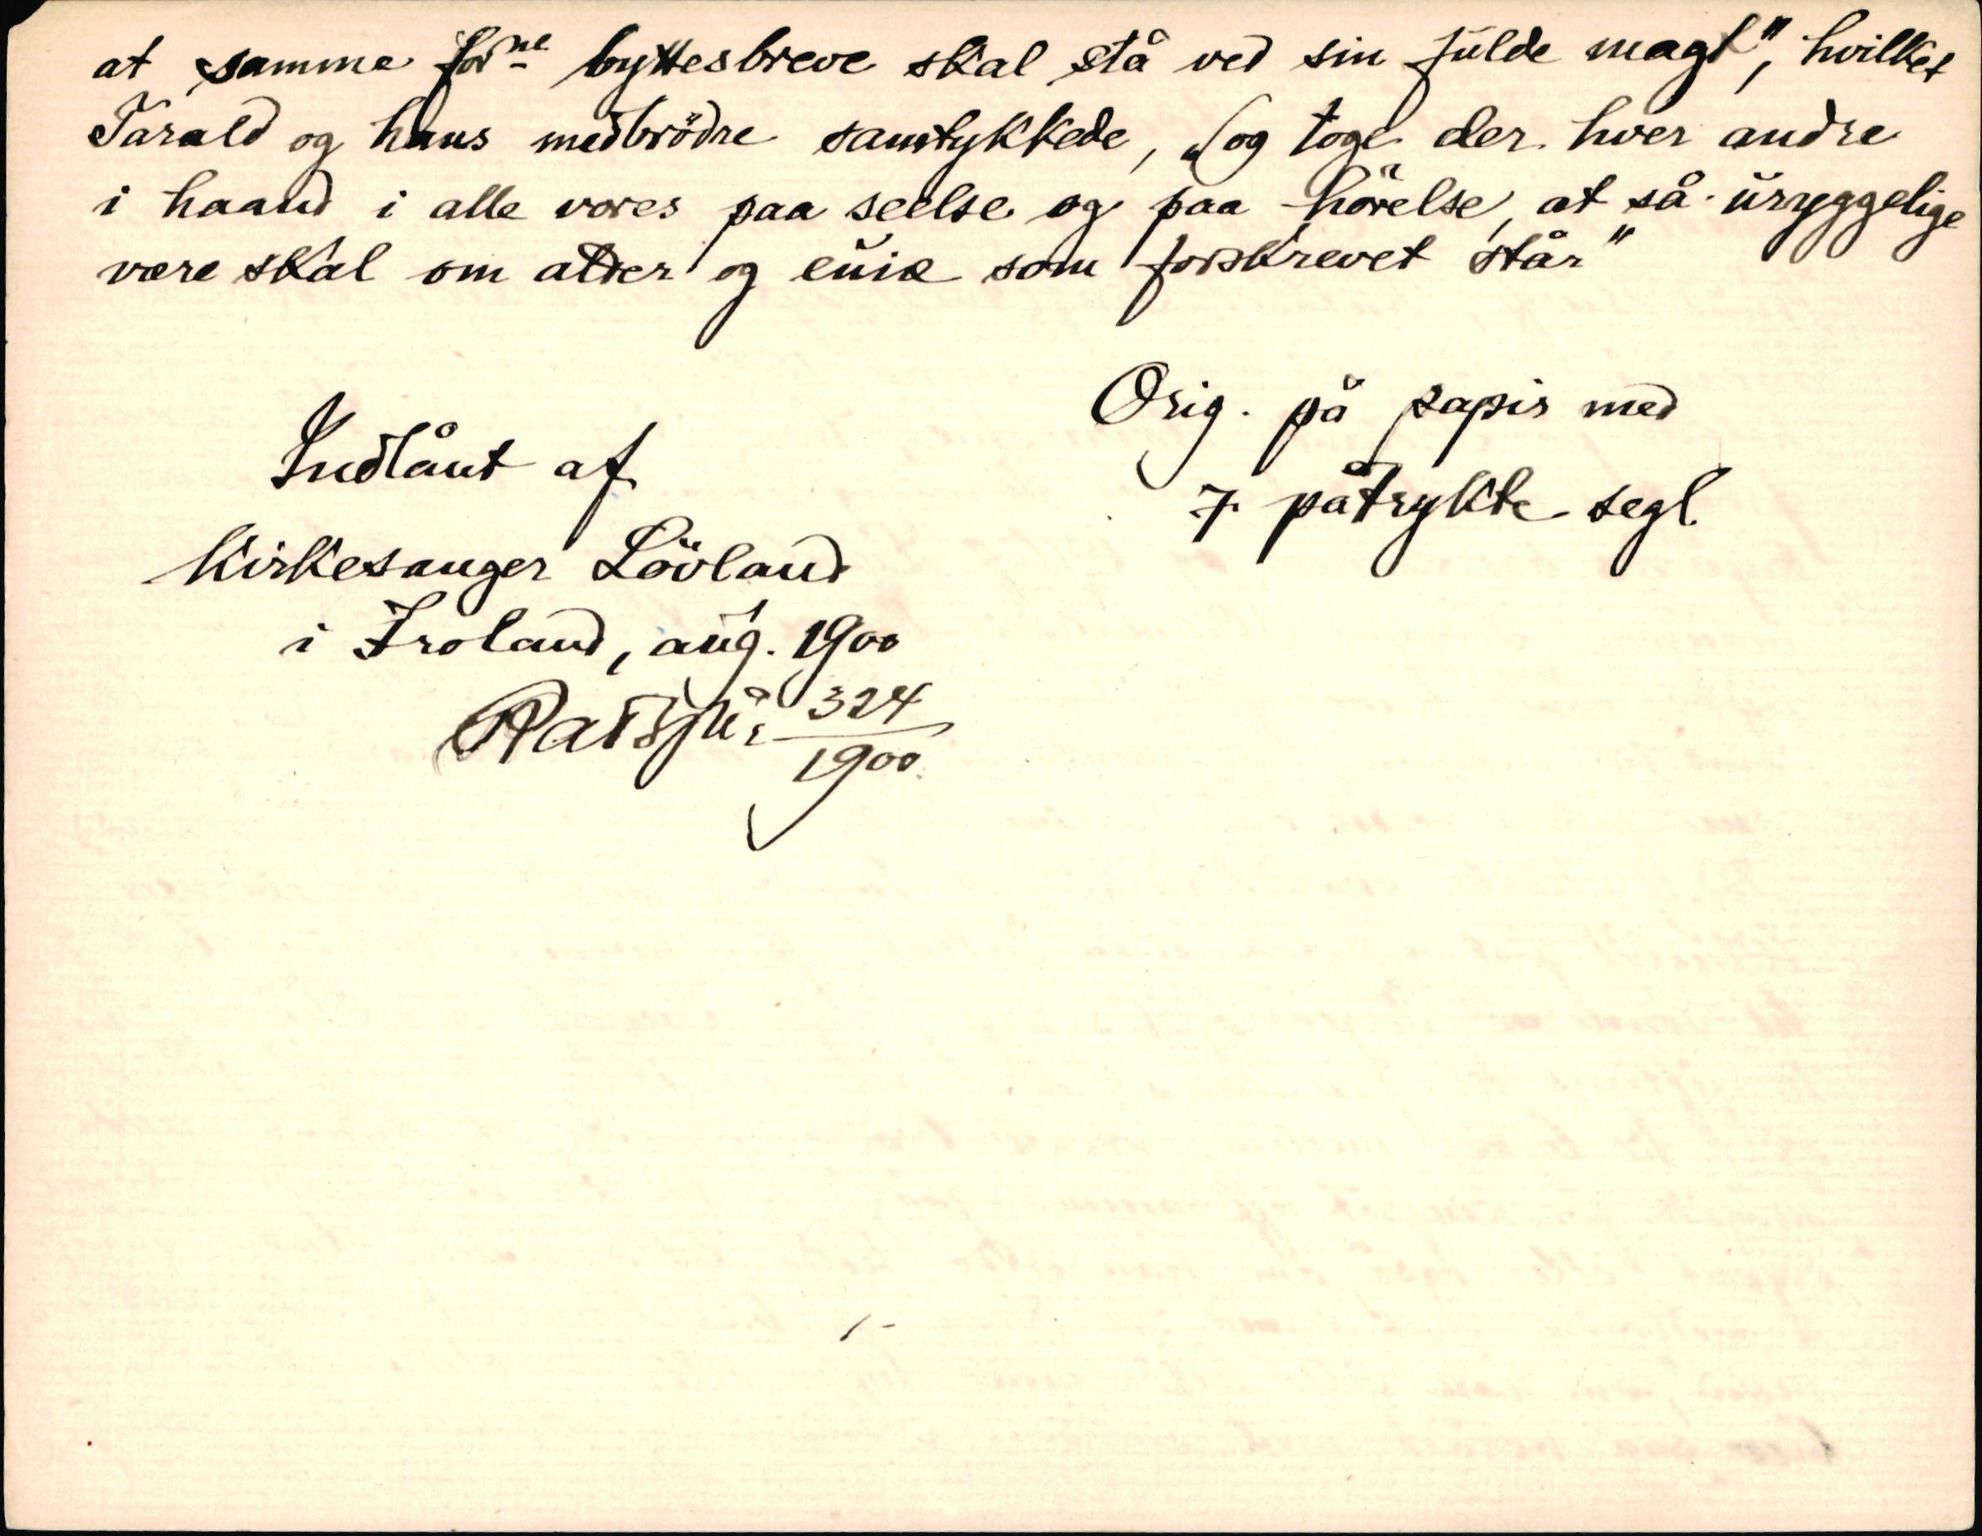 at samme forne byttesbreve skal stå ved sin fulde magt", hvilket
Tarald og hans medbrödre samtykkede, „og toge der hver andre
i haand i alle vores paa seelse og paa hörelse, at så uryggelige
være skal om alder og euie som forskrevet står"
Orig. på papir med
7 påtrykte segl.
Indlånt af
Kirkesanger Lövland
i Froland, aug. 1900
324
1900